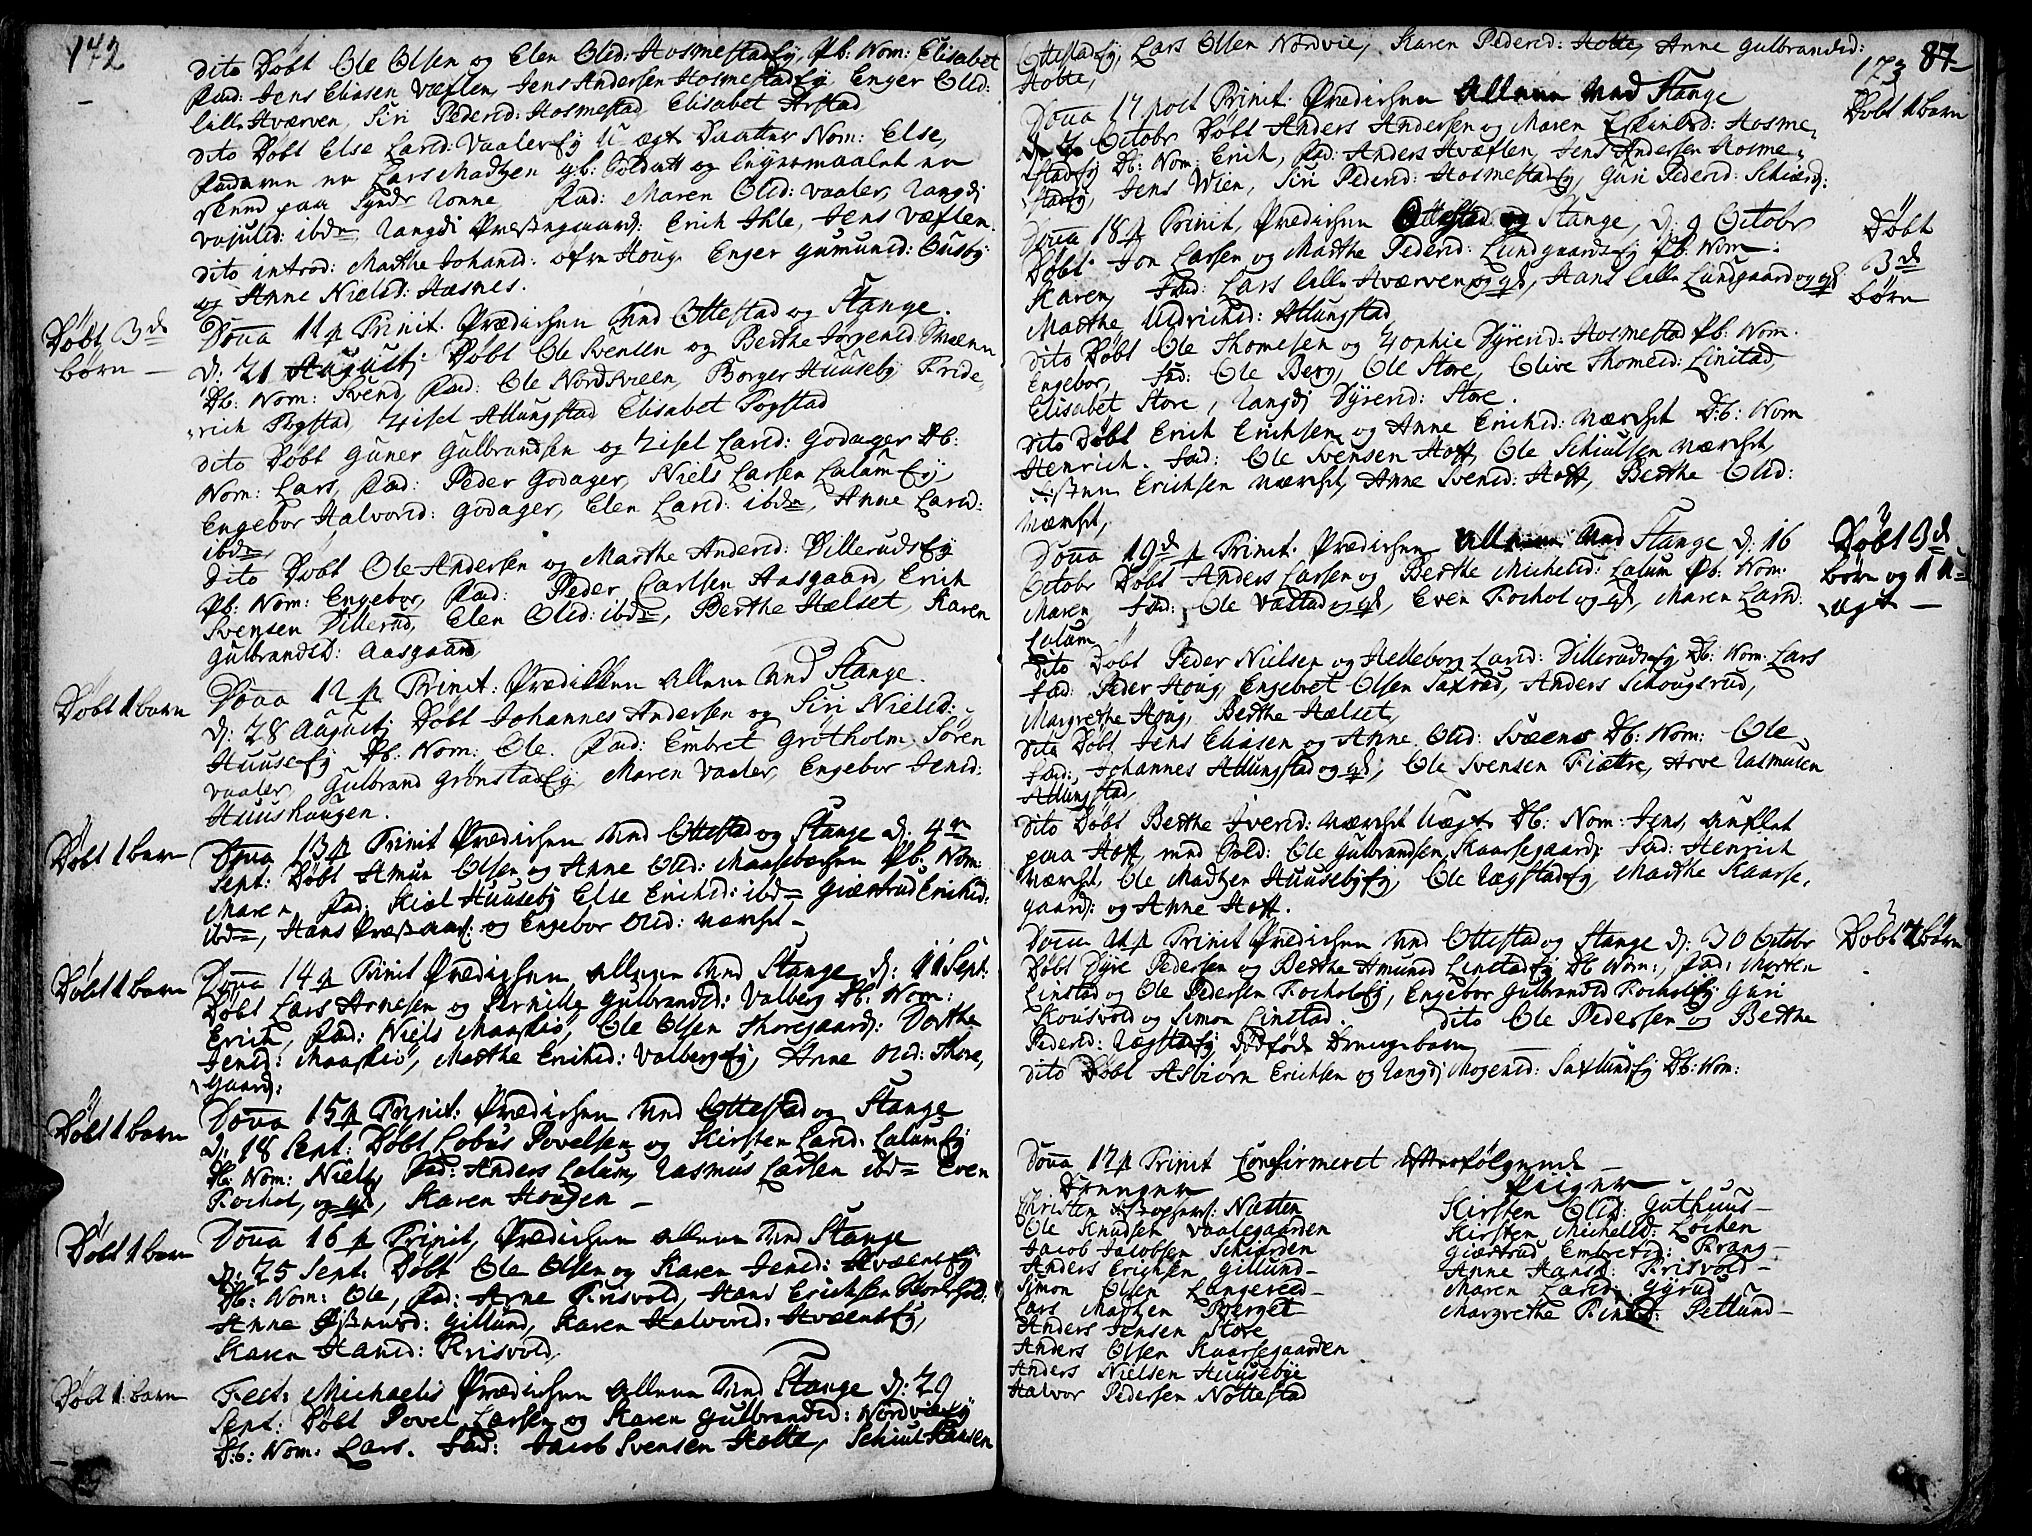 142
dito Døbt Ole Olsen og Elen Olsd: Hosmestadey, Pb: Nom: Elisabet
Fad: Jens Eliasen Væflen, Jens Andersen Hosmestadey Enger Olsd:
lille Hværven, Siri Pedersd: Hosmestad, Elisabet Arstad
dito Døbt Else Larsd: Vaalerey U ægt Daatter Nom: Else,
Faderen er Lars Madtzen gb: Soldatt og Leyermaalet er
skeed paa Fad: Maren Olsd: Vaaler, Rangdi
ibdn, Rangdi Præstegaard: Erich Ihle, Jens Væflen.
dito introd: Marthe Johansd: øfre Houg Enger Gumundsd: Huseby
og Anne Nielsd: Hasnes.
Døbt 3de
børn —
Dom 11 p Trinit: Prædichen ved Ottestad og Stange.
d: 21 Augusti Døbt Ole Svensen og Berthe Jørgensd: Svæen
Db: Nom: Svend, Fad: Ole Nordsveen, Borger Huuseby Fride,
rich Fogstad, Zisel Atlungstad Elisabet Fogstad
dito Døbt Guner Gulbrandsen og Zisel Larsd: Godager Db:
Nom: Lars, Fad: Peder Godager, Niels Larsen Lalumey,
Engebor Halvorsd: Godager, Elen Larsd: ibdn, Anne Larsd:
ibdn,
dito Døbt Ole Andersen og Marthe Andersd: Dillerudsey
Pb: Nom: Engebor, Fad: Peder Carlsen Aasgaard, Erich
Svensen Dillerud, Elen Olsd: ibdn, Berthe Hælset, Karen
Gulbrandsd: Aasgaard,
Døbt 1 barn
Dom 12 p Trinit: Prædikken allene ved Stange.
d: 28 Augusti Døbt Johannes Andersen og Siri Nielsd:
Huusey Db: Nom: Ole. Fad: Embret Grotholm, Søren
Vaaler, Gulbrand Grønstadey, Maren Vaaler, Engebor Jensd:
Huushaugen.
Døbt 1 barn
Dom 13 p Trinit Prædichen ved Ottestad og Stange d: 4de
Sept: Døbt Amun Olsen og Anne Olsd: Maasebachen Pb: Nom:
Maren Fad: Kiol Huuseby Else Erichsd: ibdn Giærtrud Erichsd:
ibdn, Hans og Engebor Olsd: Nærset —
Døbt 1 barn
Dom 14 p Trinit Prædichen allene ved Stange d: 11 Sept:
Døbt Lars Arnesen og Pernille Gulbrandsd: Valberg Db: Nom:
Erich, Fad: Niels Maaseiø, Ole Olsen Thoregaard: Dorthe
Jensd: Maaseiø, Marthe Erichsd: Valbergey, Anne Olsd: Thore,
gaard:
Døbt 1 barn
Dom 15 p Trinit: Prædichen ved Ottestad og Stange
d: 18 Sept: Døbt Lobus Povelsen og Kirsten Larsd: Lalumey
Db: Nom: Niels, Fad: Anders Lalum, Rasmus Larsen ibdn Even
Fochol, og qd, Karen Hougen —
Døbt 1 barn
Dom 16 p Trinit, Prædichen allene ved Stange
d: 25 Sept: Døbt Ole Olsen og Karen Jensd: Hvæensey
Db: Nom: Ole, Fad: Arne Frisvold, Hans Erichsen
Anne Gillund, Karen Halvorsd: Hvæensey,
Karen Hansd: Frisvold,
Døbt 1 barn
Fest: Michaelis Prædichen allene ved Stange d: 29
Sept: Døbt Povel Larsen og Karen Gulbrandsd: Nordvieey
Db: Nom: Lars. Fad: Jacob Svensen Holte, Schiul Hansen
173 87
Ottestadey, Lars Olsen Nordvie, Karen Pedersd: Holte, Anne Gulbrandsd:
Holte,
Døbt 1 barn
Dom 17 post Trinit: Prædichen allene ved Stange
d: 2 Octobr Døbt Anders Andersen og Maren Hosme,
stadey Db: Nom: Erich, Fad: Anders Hvæflen, Jens Andersen Hosme,
stadey, Jens Wien, Siri Pedersd: Hosmestadey, Guri Pedersd: Schiærd:
Døbt
3de
børn
Dom 18 p Trinit, Prædichen Ottestad og Stange, d: 9 Octobr
Døbt Jon Larsen og Marthe Pedersd: Lundgaardsey Pb: Nom:
Karen, Fad: Lars lille Hværven og qd, Hans lille Lundgaard og qd
Marthe Uldrichsd: Atlungstad,
dito Døbt Ole Thomesen og Zophie Dyresd: Hosmestad Pb: Nom:
Engebor, Fad: Ole Berg, Ole Store, Olive Thomesd: Linstad,
Elisabet Store, Rangdi Dyresd: Store.
dito Døbt Erich Erichsen og Anne Erichsd: Nærset Db: Nom
Henrich. Fad: Ole Svensen Hoff, Ole Schiulsen Nærset,
Erichsen Nærset, Anne Svensd: Hoff, Berthe Olsd:
Nærset,
Døbt 3de
børn og 1 U=
ægt —
Dom 19de p Trinit: Prædichen allene ved Stange d: 16
Octobr Døbt Anders Larsen og Berthe Michelsd: Lalum Pb: Nom:
Maren Fad: Ole Vastad og qd, Even Fochol og qd, Maren Larsd:
Lalum
dito Døbt Peder Nielsen og Helleborg Larsd: Dillerudsey Db: Nom: Lars
Fad: Peder Houg, Engebret Olsen Saxrud, Anders Schougsrud,
Margrethe Houg, Berthe Hælset,
dito Døbt Jens Eliasen og Anne Olsd: Svæen Db: Nom: Ole
Fad: Johannes Atlungstad og qd, Ole Svensen Fiætre, Arve Rasmusen
Atlungstad,
dito Døbt Berthe Iversd: Nærset Uægt Db: Nom: Jens, auflet
paa Hoff, med Sold: Ole Gulbrandsen Kaarsegaard: Fad: Henrich
Nærset, Ole Madtzen Huusebyey, Ole Ragstadey, Marthe Kaarse,
gaard: og Anne Hoff.
Døbt 2 børn
Dom 21 p Trinit Prædichen ved Ottestad og Stange d: 30 Octobr
Døbt Dyre Pedersen og Berthe Amunsd Linstadey Db Nom:, Fad: Morten
Linstad og Ole Pedersen Focholey, Engebor Gulbrandsd Focholey Guri
Kousvold og Simon Linstad dito Ole Pedersen og Berthe
Pedersd: Ragstadey dødfødt Drengebarn
dito Døbt Asbiørn Erichsen og Rangdi Mogensd: Saxlundey Db: Nom:
Dom 17 p Trinit Confirmeret efterfølgende —
Drenger
Christen Næsten
Ole Knudsen Vaalegaarden
Jacob Jacobsen Schiærden
Anders Erichsen Gillund —
Simon Olsen Langereed —
Lars Madtzen Berget
Anders Jensen Store
Anders Olsen Kaarsegaarden
Anders Nielsen Huusebye
Halvor Pedersen Nottestad
Piiger —
Kirsten Olsd: Guthuus —
Kirsten Michelsd: Lochen
Giærtrud Embretsd: Frang —
Anne Hansd: Frisvold —
Maren Larsd: Gyrud
Margrethe Finsd: Petlund —